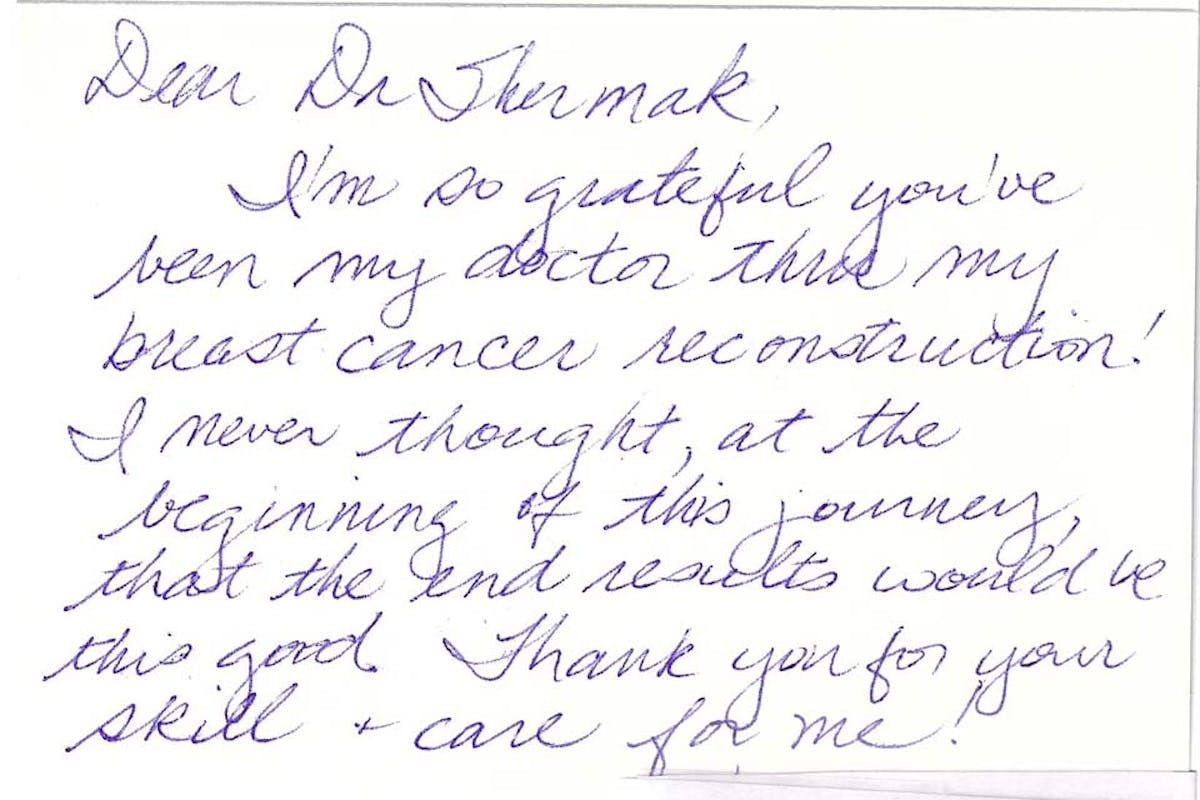 Dear Dr Thermak,
I'm so grateful you've
been my doctor thru my
breast cancer reconstruction!
I never thought, at the
beginning of this journey,
that the end results would be
this good. Thank you for your
skill + care for me!